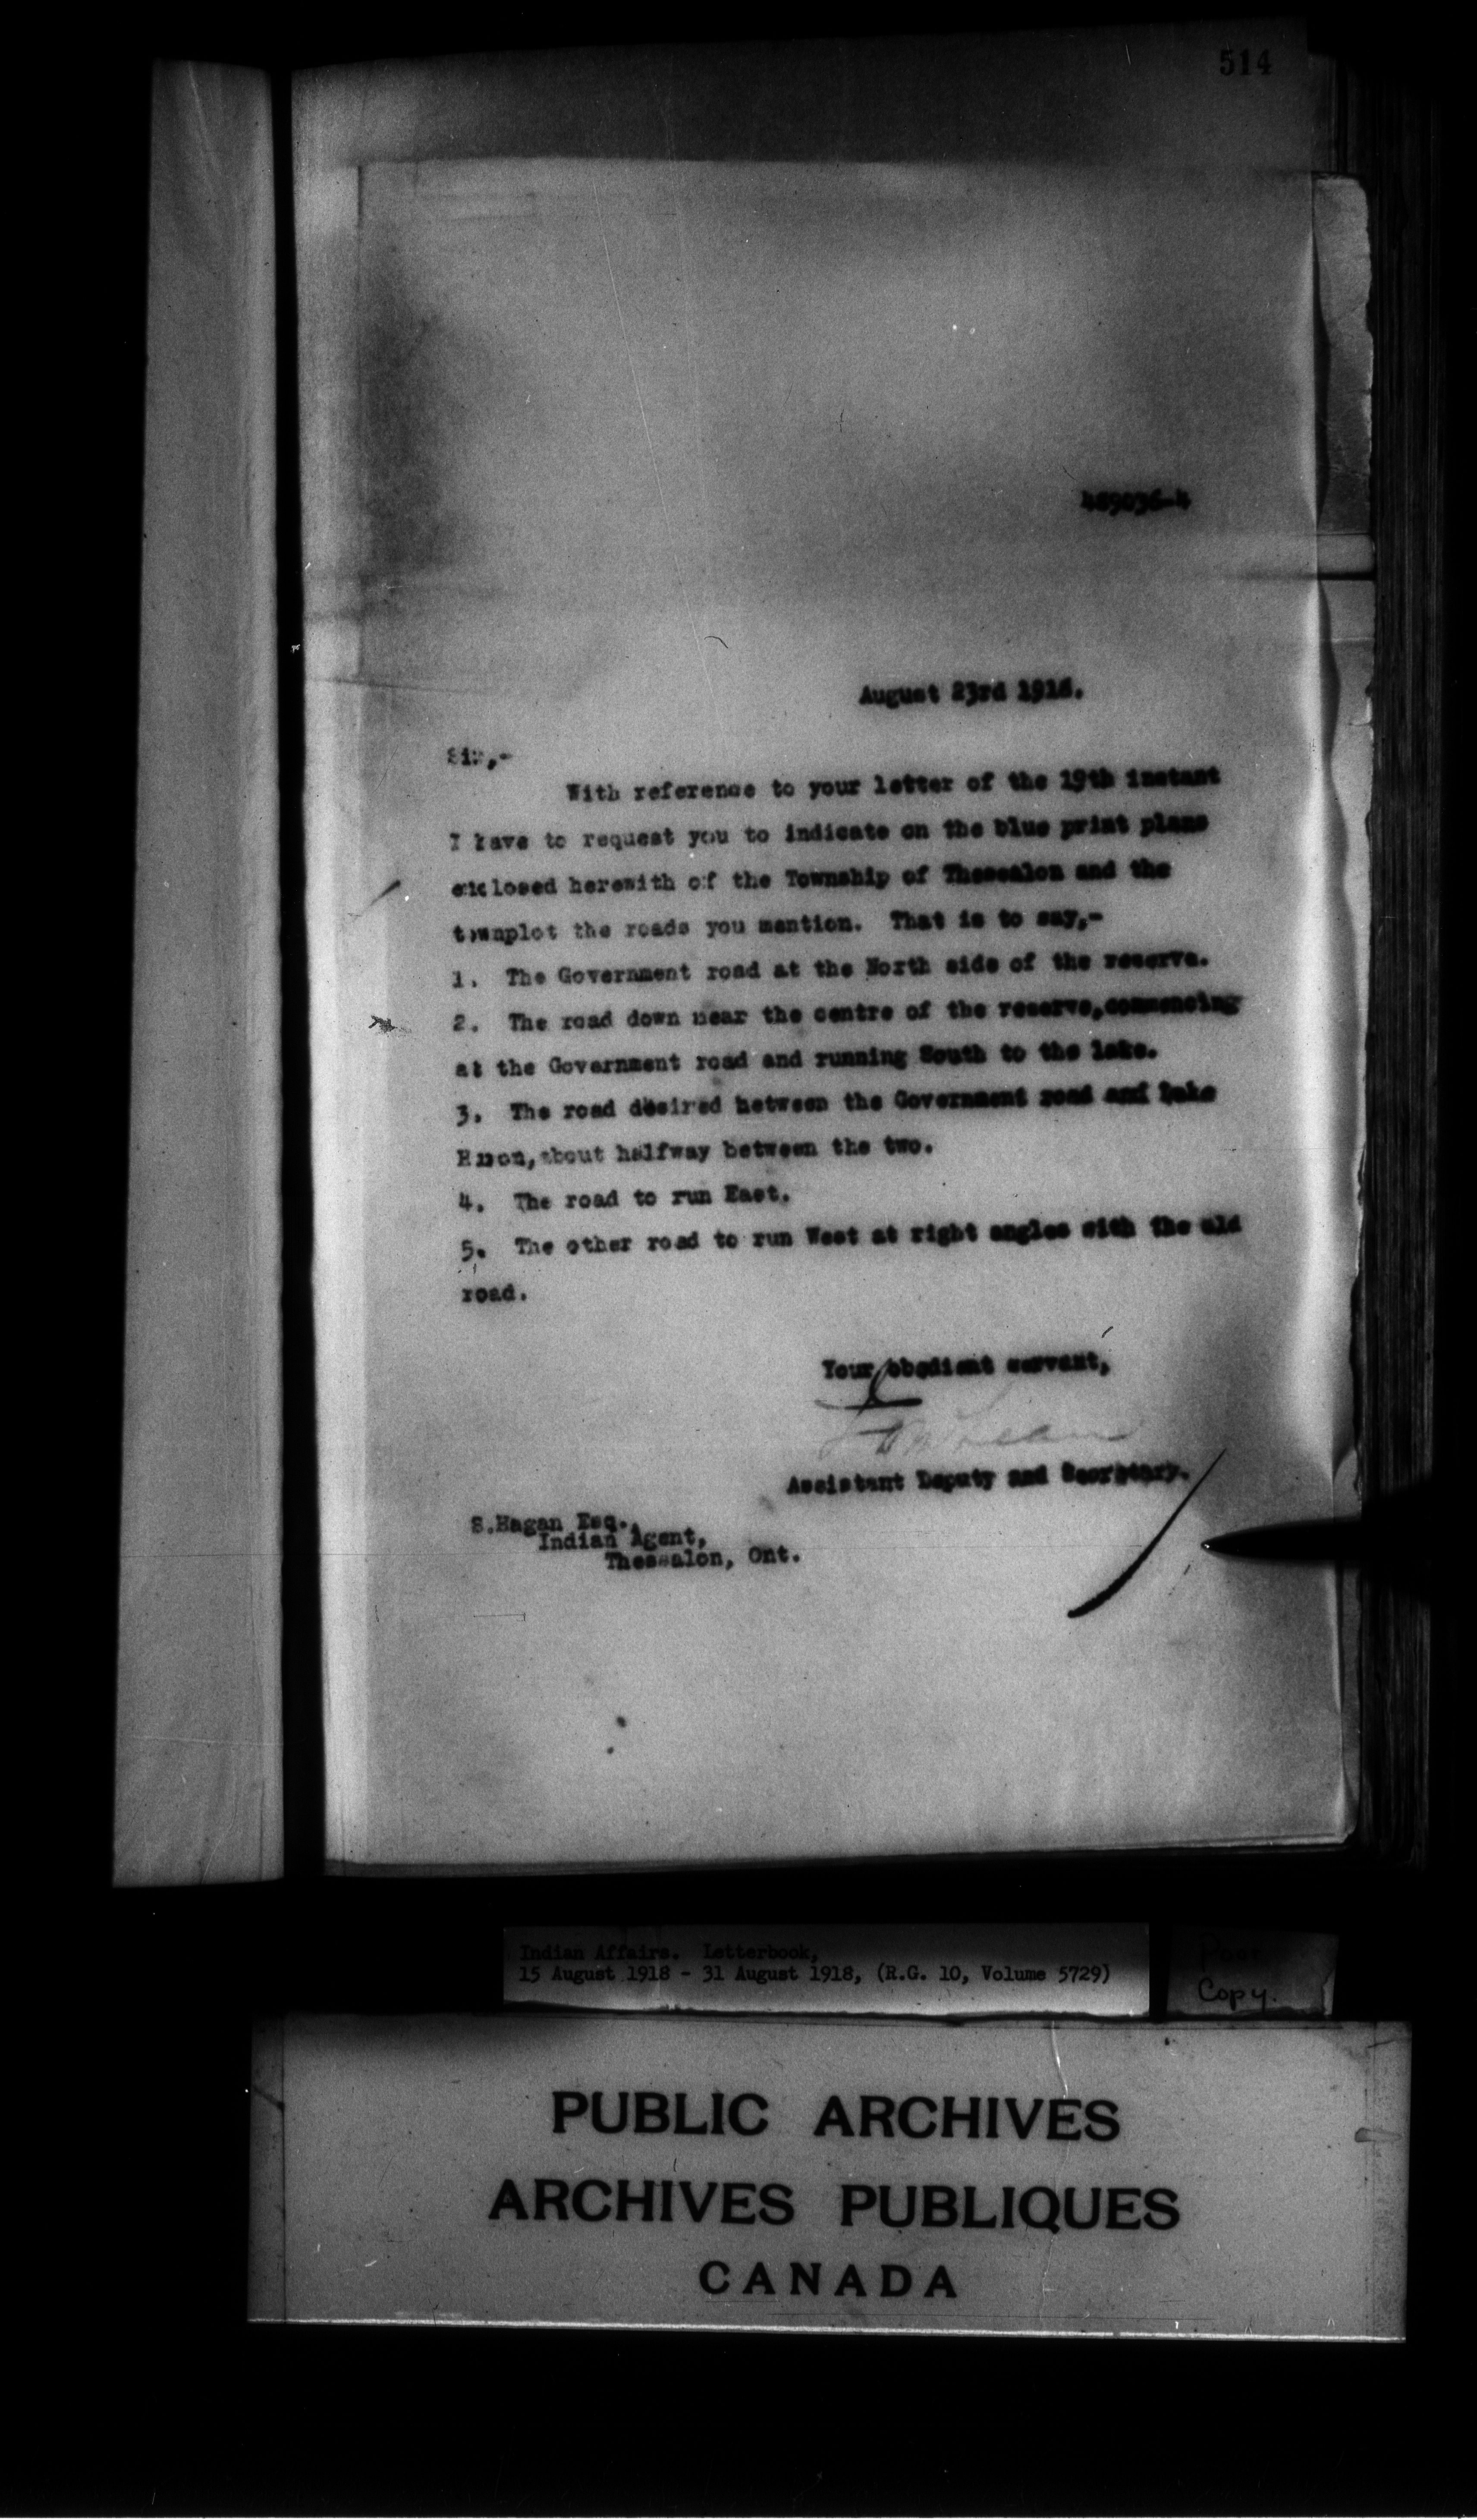 514
August 23rd 1918.
Sir,-
With reference to your letter of the 19th instant
I have to request you to indicate on the blue print plans
enclosed herewith of the Township of Thessalon and the
townplot the roads you mention. That is to say,-
1. The Government road at the North side of the reserve.
2. The road down near the centre of the reserve,commencing
at the Government road and running South to the lake.
3. The road desired between the Government road and Lake
Huron,about halfway between the two.
4. The road to run East.
5. The other road to run West at right angles with the old
road.
Your obedient servant,
Assistant Deputy and Secretary.
S.Hagan Esq.,
Indian Agent,
Thessalon, Ont.
Indian Affairs. Letterbook,
15 August 1918 - 31 August 1918, (R.G. 10, Volume 5729)
Poor
Copy.
PUBLIC ARCHIVES
ARCHIVES PUBLIQUES
CANADA